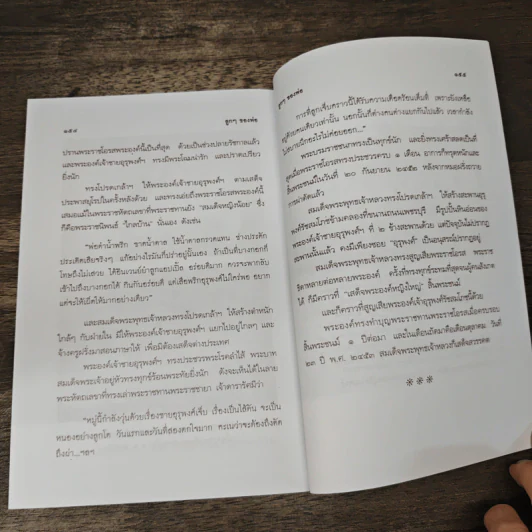 ๑๕๔
ลูกๆ ของพ่อ
ปรานพระราชโอรสพระองค์นี้เป็นที่สุด ด้วยเป็นช่วงปลายรัชกาลแล้ว
และพระองค์เจ้าชายอุรุพงศ์ฯ ทรงมีพระโฉมน่ารัก และปราดเปรียว
ยิ่งนัก
ทรงโปรดเกล้าฯ ให้พระองค์เจ้าชายอุรุพงศ์ฯ ตามเสด็จ
ประพาสยุโรปในครั้งหลังด้วย และทรงเอ่ยถึงพระราชโอรสพระองค์นี้
เสมอแม้ในพระราชหัตถเลขาที่พระราชทานยัง "สมเด็จหญิงน้อย" ซึ่ง
ก็คือพระราชนิพนธ์ "ไกลบ้าน" นั่นเอง ดังเช่น
"พ่อตำน้ำพริก ขาดน้ำตาล ใช้น้ำตาลกรวดแทน ช่างประดัก
ประเดิดเสียจริงๆ แก้อย่างไรมันก็เปร่าอยู่นั่นเอง ถ้าเป็นที่บางกอกก็
โทษถึงไม่เฮวย ได้ชิมเวนน้ำลูกแอปเปิ้ล อร่อยดีมาก ควรจะพากลับ
เข้าไปถึงบางกอกได้ กินกับอร่อยดี แต่เสียพริกชูรุพงศ์ไม่ใคร่พอ อยาก
แต่จะให้เผ็ดให้มากอย่างเดียว"
และสมเด็จพระพุทธเจ้าหลวงก็ทรงโปรดเกล้าฯ ให้สร้างตำหนัก
ใกล้ๆ กับฝ่ายใน มีให้พระองค์เจ้าชายอุรุพงศ์ฯ แยกไปอยู่ไกลๆ และ
จ้างครูฝรั่งมาสอนภาษาให้ เพื่อมิต้องเสด็จต่างประเทศ
พระองค์เจ้าชายอุรุพงศ์ฯ ทรงประชวรพระโรคลำไส้ พระบาท
สมเด็จพระเจ้าอยู่หัวทรงทุกข์ร้อนพระทัยยิ่งนัก ดังจะเห็นได้ในลาย
พระหัตถเลขาที่ทรงเล่าพระราชทานพระราชชายา เจ้าดารารัศมีว่า
"หมู่นี้กำลังวุ่นด้วยเรื่องชายอุรุพงศ์เจ็บ เรื่องเป็นไส้ตัน จะเป็น
หนองอย่างลูกโต วันแรกและวันที่สองตกใจมาก คะเนว่าจะต้องถึงตัด
ถึงผ่า...ฯลฯ
ลูกๆ ของพ่อ
๑๕๕
การที่ลูกเจ็บคราวนี้ได้รับความเดือดร้อนเต็มที่ เพราะยังเหลือ
อยู่ด้วยคนเดียวเท่านั้น นอกนั้นก็ต่างคนต่างแยกกันไปแล้ว เวลากำลัง
พระบรมราชชนกทรงเป็นทุกข์นัก และยิ่งทรงเศร้าสลดเป็นที่
สุดเมื่อพระราชโอรสทรงประชวรครบ ๑ เดือน อาการก็ทรุดหนักและ
สิ้นพระชนม์ในวันที่ ๒๐ กันยายน ๒๔๕๒ หลังจากหมอฝรั่งถวาย
การผ่าตัดแล้ว
สมเด็จพระพุทธเจ้าหลวงทรงโปรดเกล้าฯ ให้สร้างสะพานอุรุ
พงศ์รัชสมโภชข้ามคลองที่ขนานถนนเพชรบุรี มีรูปปั้นหินอ่อนของ
พระองค์เจ้าชายอุรุพงศ์ฯ ที่ ๒ ข้างสะพานด้วย แต่ปัจจุบันไม่ปรากฏ
สะพานนั้นแล้ว คงมีเพียงซอย "อุรุพงศ์" เป็นอนุสรณ์ปรากฏอยู่
สมเด็จพระพุทธเจ้าหลวงทรงสูญเสียพระราชโอรส พระราช
ธิดาหลายต่อหลายพระองค์ ครั้งที่ทรงทุกข์ระทมที่สุดจนผู้คนสังเกต
ได้ ก็มีคราวที่ "เสด็จพระองค์หญิงใหญ่" สิ้นพระชนม์
และก็คราวที่สูญเสียพระองค์เจ้าอุรุพงศ์รัชสมโภชนี้ด้วย
พระองค์ทรงทำบุญพระราชทานพระราชโอรสเมื่อครบรอบ
สิ้นพระชนม์ ๑ ปีต่อมา และในเดือนถัดมาคือเดือนตุลาคม วันที่
๒๓ ปี พ.ศ. ๒๔๕๓ สมเด็จพระพุทธเจ้าหลวงก็เสด็จสวรรคต
***